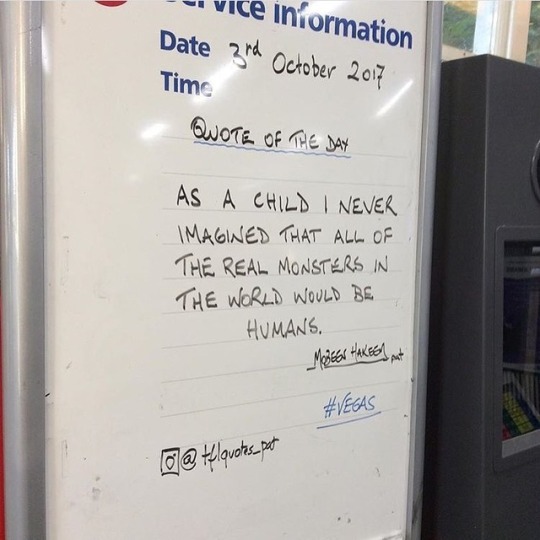 Service information
Date 3rd October 2017
Time
QUOTE OF THE DAY
AS A CHILD I NEVER
IMAGINED THAT ALL OF
THE REAL MONSTERS IN
THE WORLD WOULD BE
HUMANS.
MOBEEN HAKEEM pat
#VEGAS
@tflquotes_pat